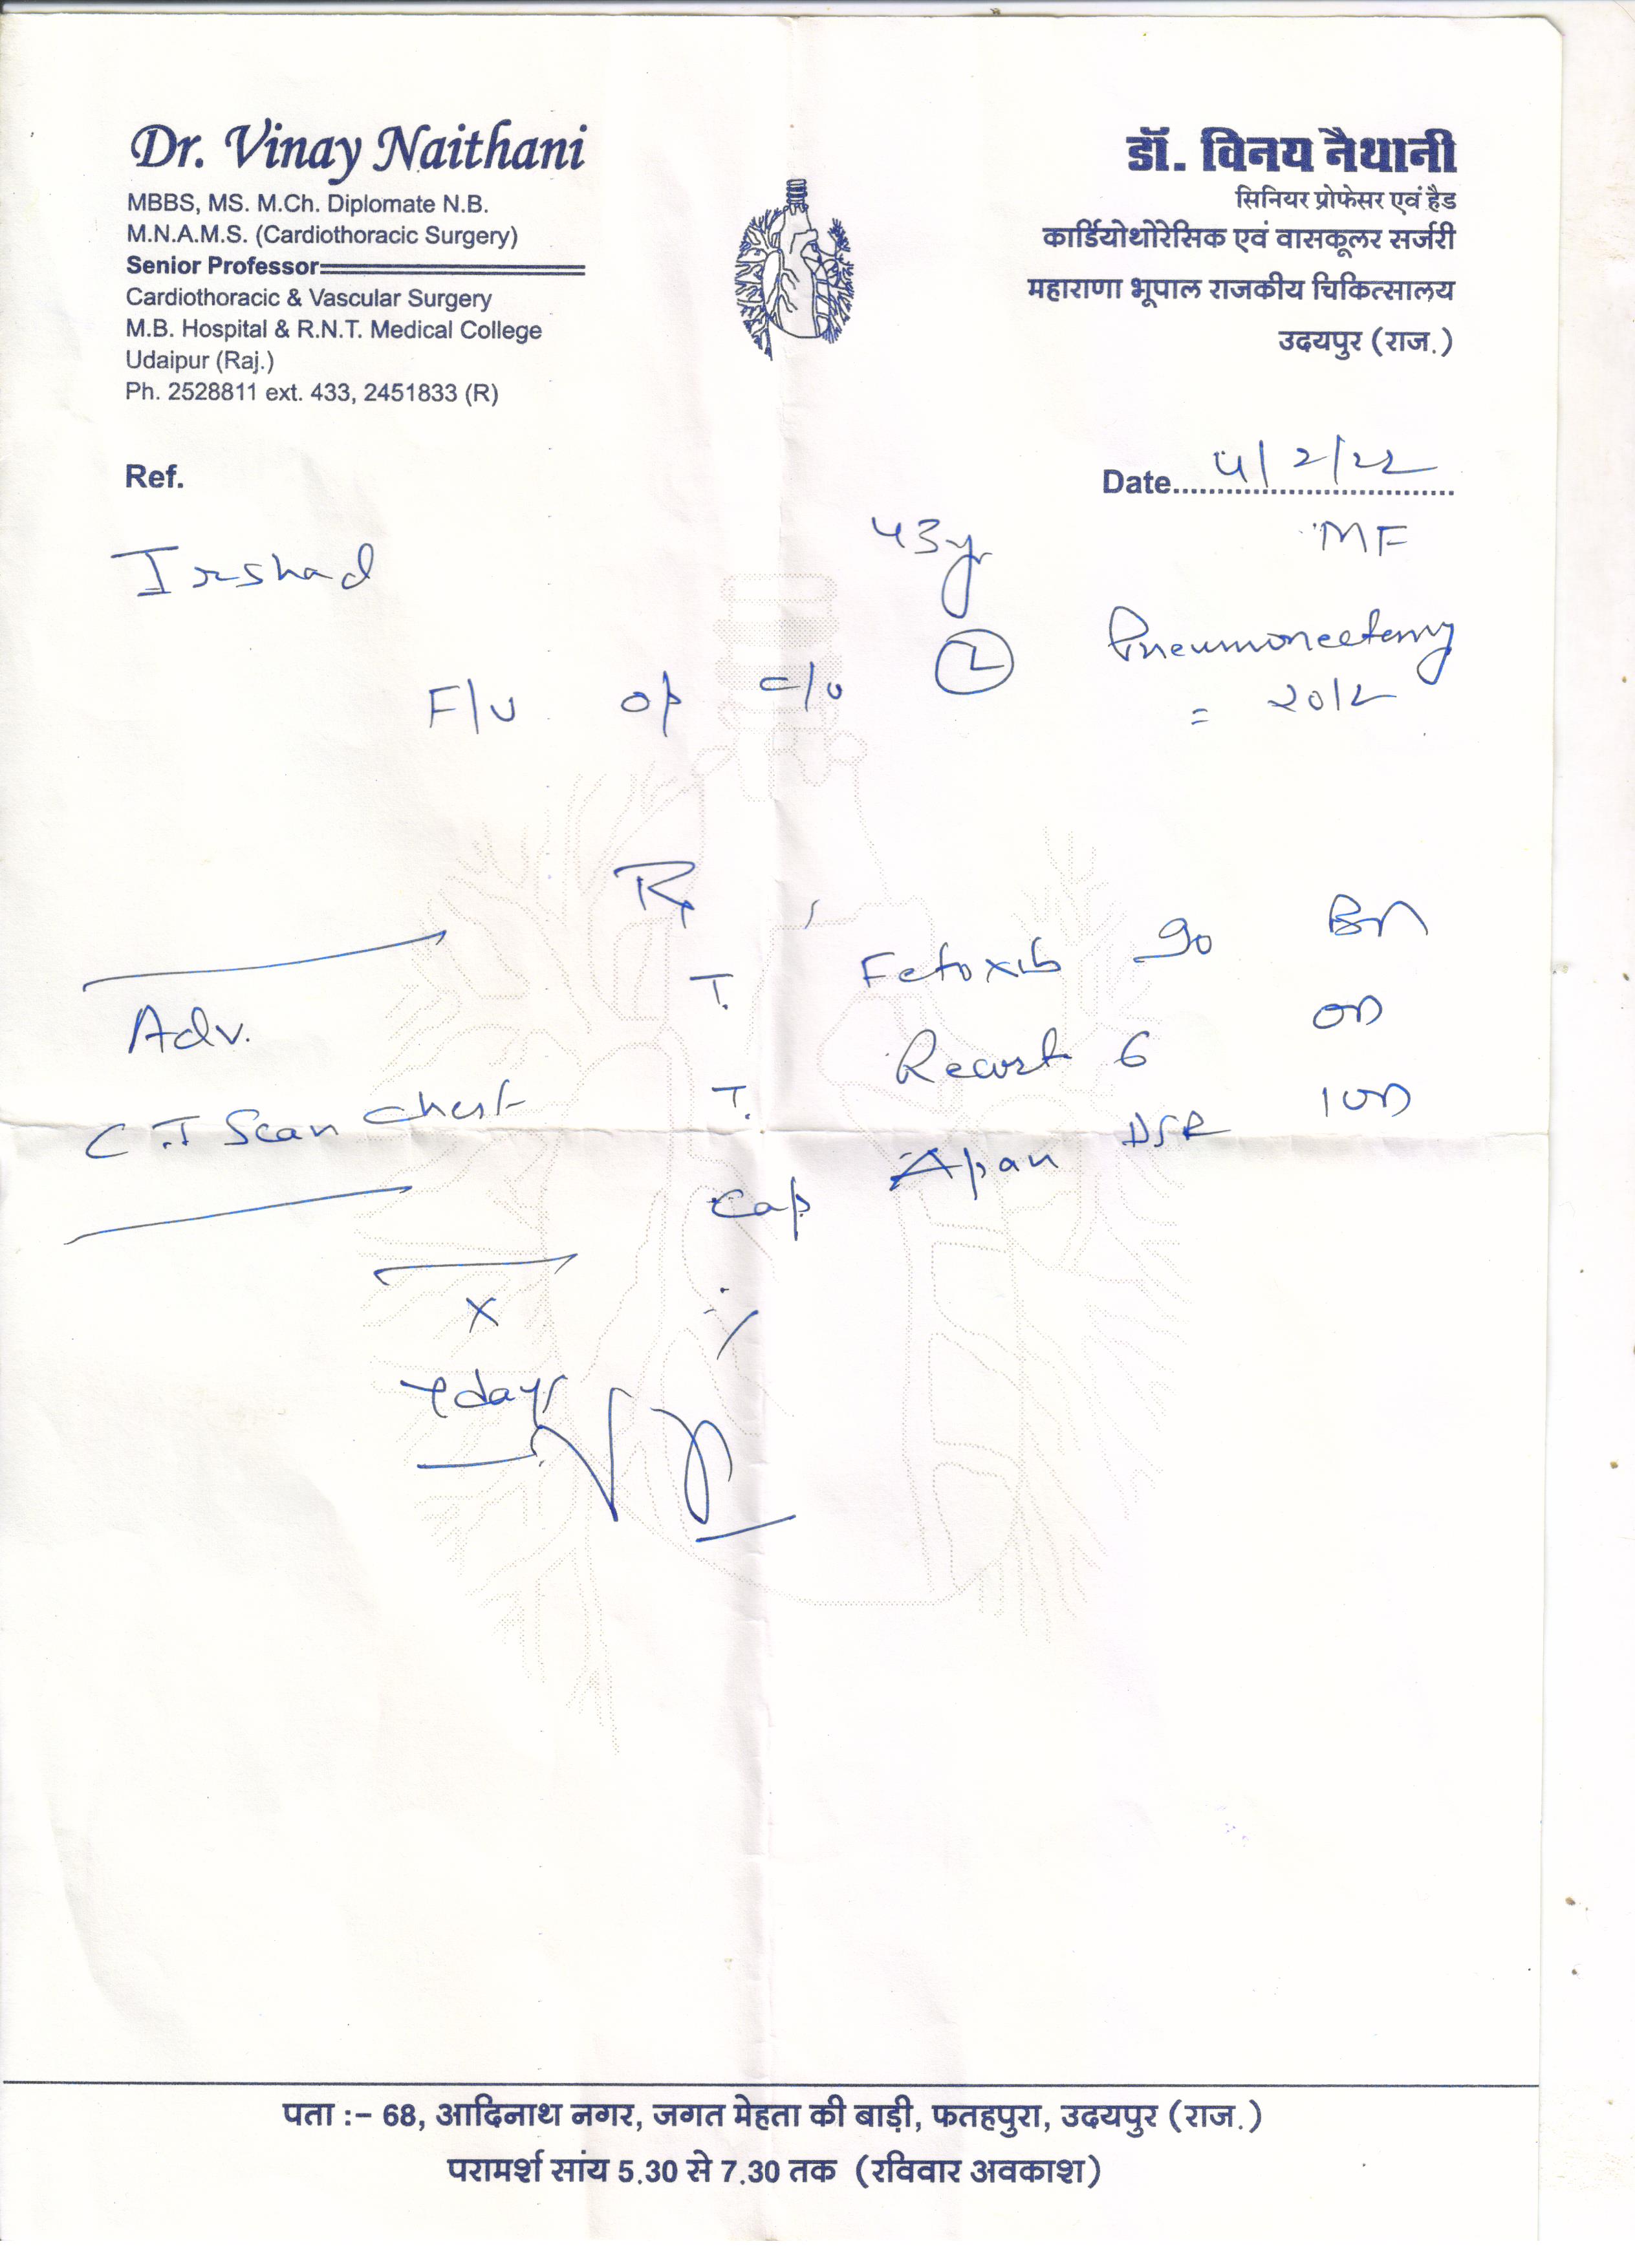 Dr. Vinay Naithani
MBBS, MS. M.Ch. Diplomate N.B.
M.N.A.M.S. (Cardiothoracic Surgery)
Senior Professor
Cardiothoracic & Vascular Surgery
M.B. Hospital & R.N.T. Medical College
Udaipur (Raj.)
Ph. 2528811 ext. 433, 2451833 (R)
डॉ. विनय नैथानी
सिनियर प्रोफेसर एवं हैड
कार्डियोथोरेसिक एवं वासकूलर सर्जरी
महाराणा भूपाल राजकीय चिकित्सालय
उदयपुर (राज.)
Ref.
Date 4/2/22
Irshad 43yr MF
F/U op c/o Ⓛ Pneumonectomy
= 2012
Rx
T. Fetoxib 90 BD
T. Recort 6 OD
Cap Apan DSR 1OD
Adv.
C.T Scan Chest
X
7days
पता :– 68, आदिनाथ नगर, जगत मेहता की बाड़ी, फतहपुरा, उदयपुर (राज.)
परामर्श सांय 5.30 से 7.30 तक (रविवार अवकाश)